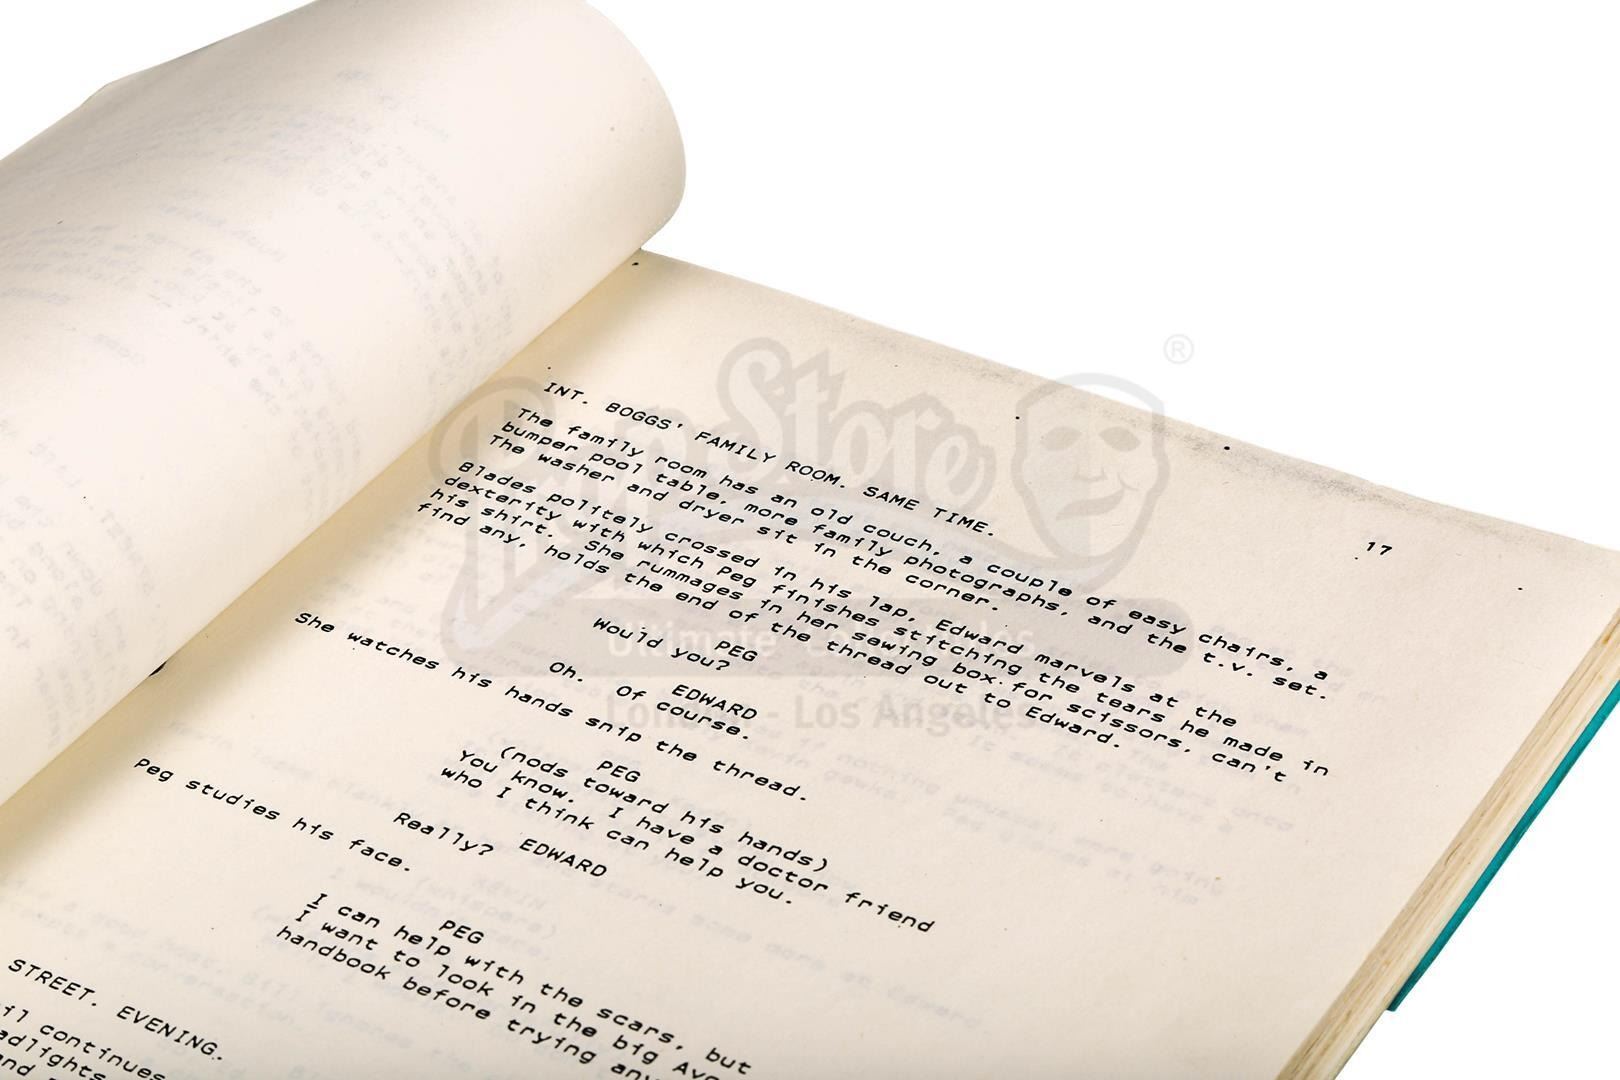 17
INT. BOGGS' FAMILY ROOM. SAME TIME.
The family room has an old couch, a couple of easy chairs, a
bumper pool table, more family photographs, and the t.v. set.
The washer and dryer sit in the corner.
Blades politely crossed in his lap, Edward marvels at the
dexterity with which Peg finishes stitching the tears he made in
his shirt. She rummages in her sewing box for scissors, can't
find any, holds the end of the thread out to Edward.
PEG
Would you?
EDWARD
Oh. Of course.
She watches his hands snip the thread.
PEG
(nods toward his hands)
You know. I have a doctor friend
who I think can help you.
EDWARD
Really?
Peg studies his face.
PEG
I can help with the scars, but
I want to look in the big
handbook before trying
STREET. EVENING.
continues
Prop Store
®
Ultimate Collectables
London - Los Angeles